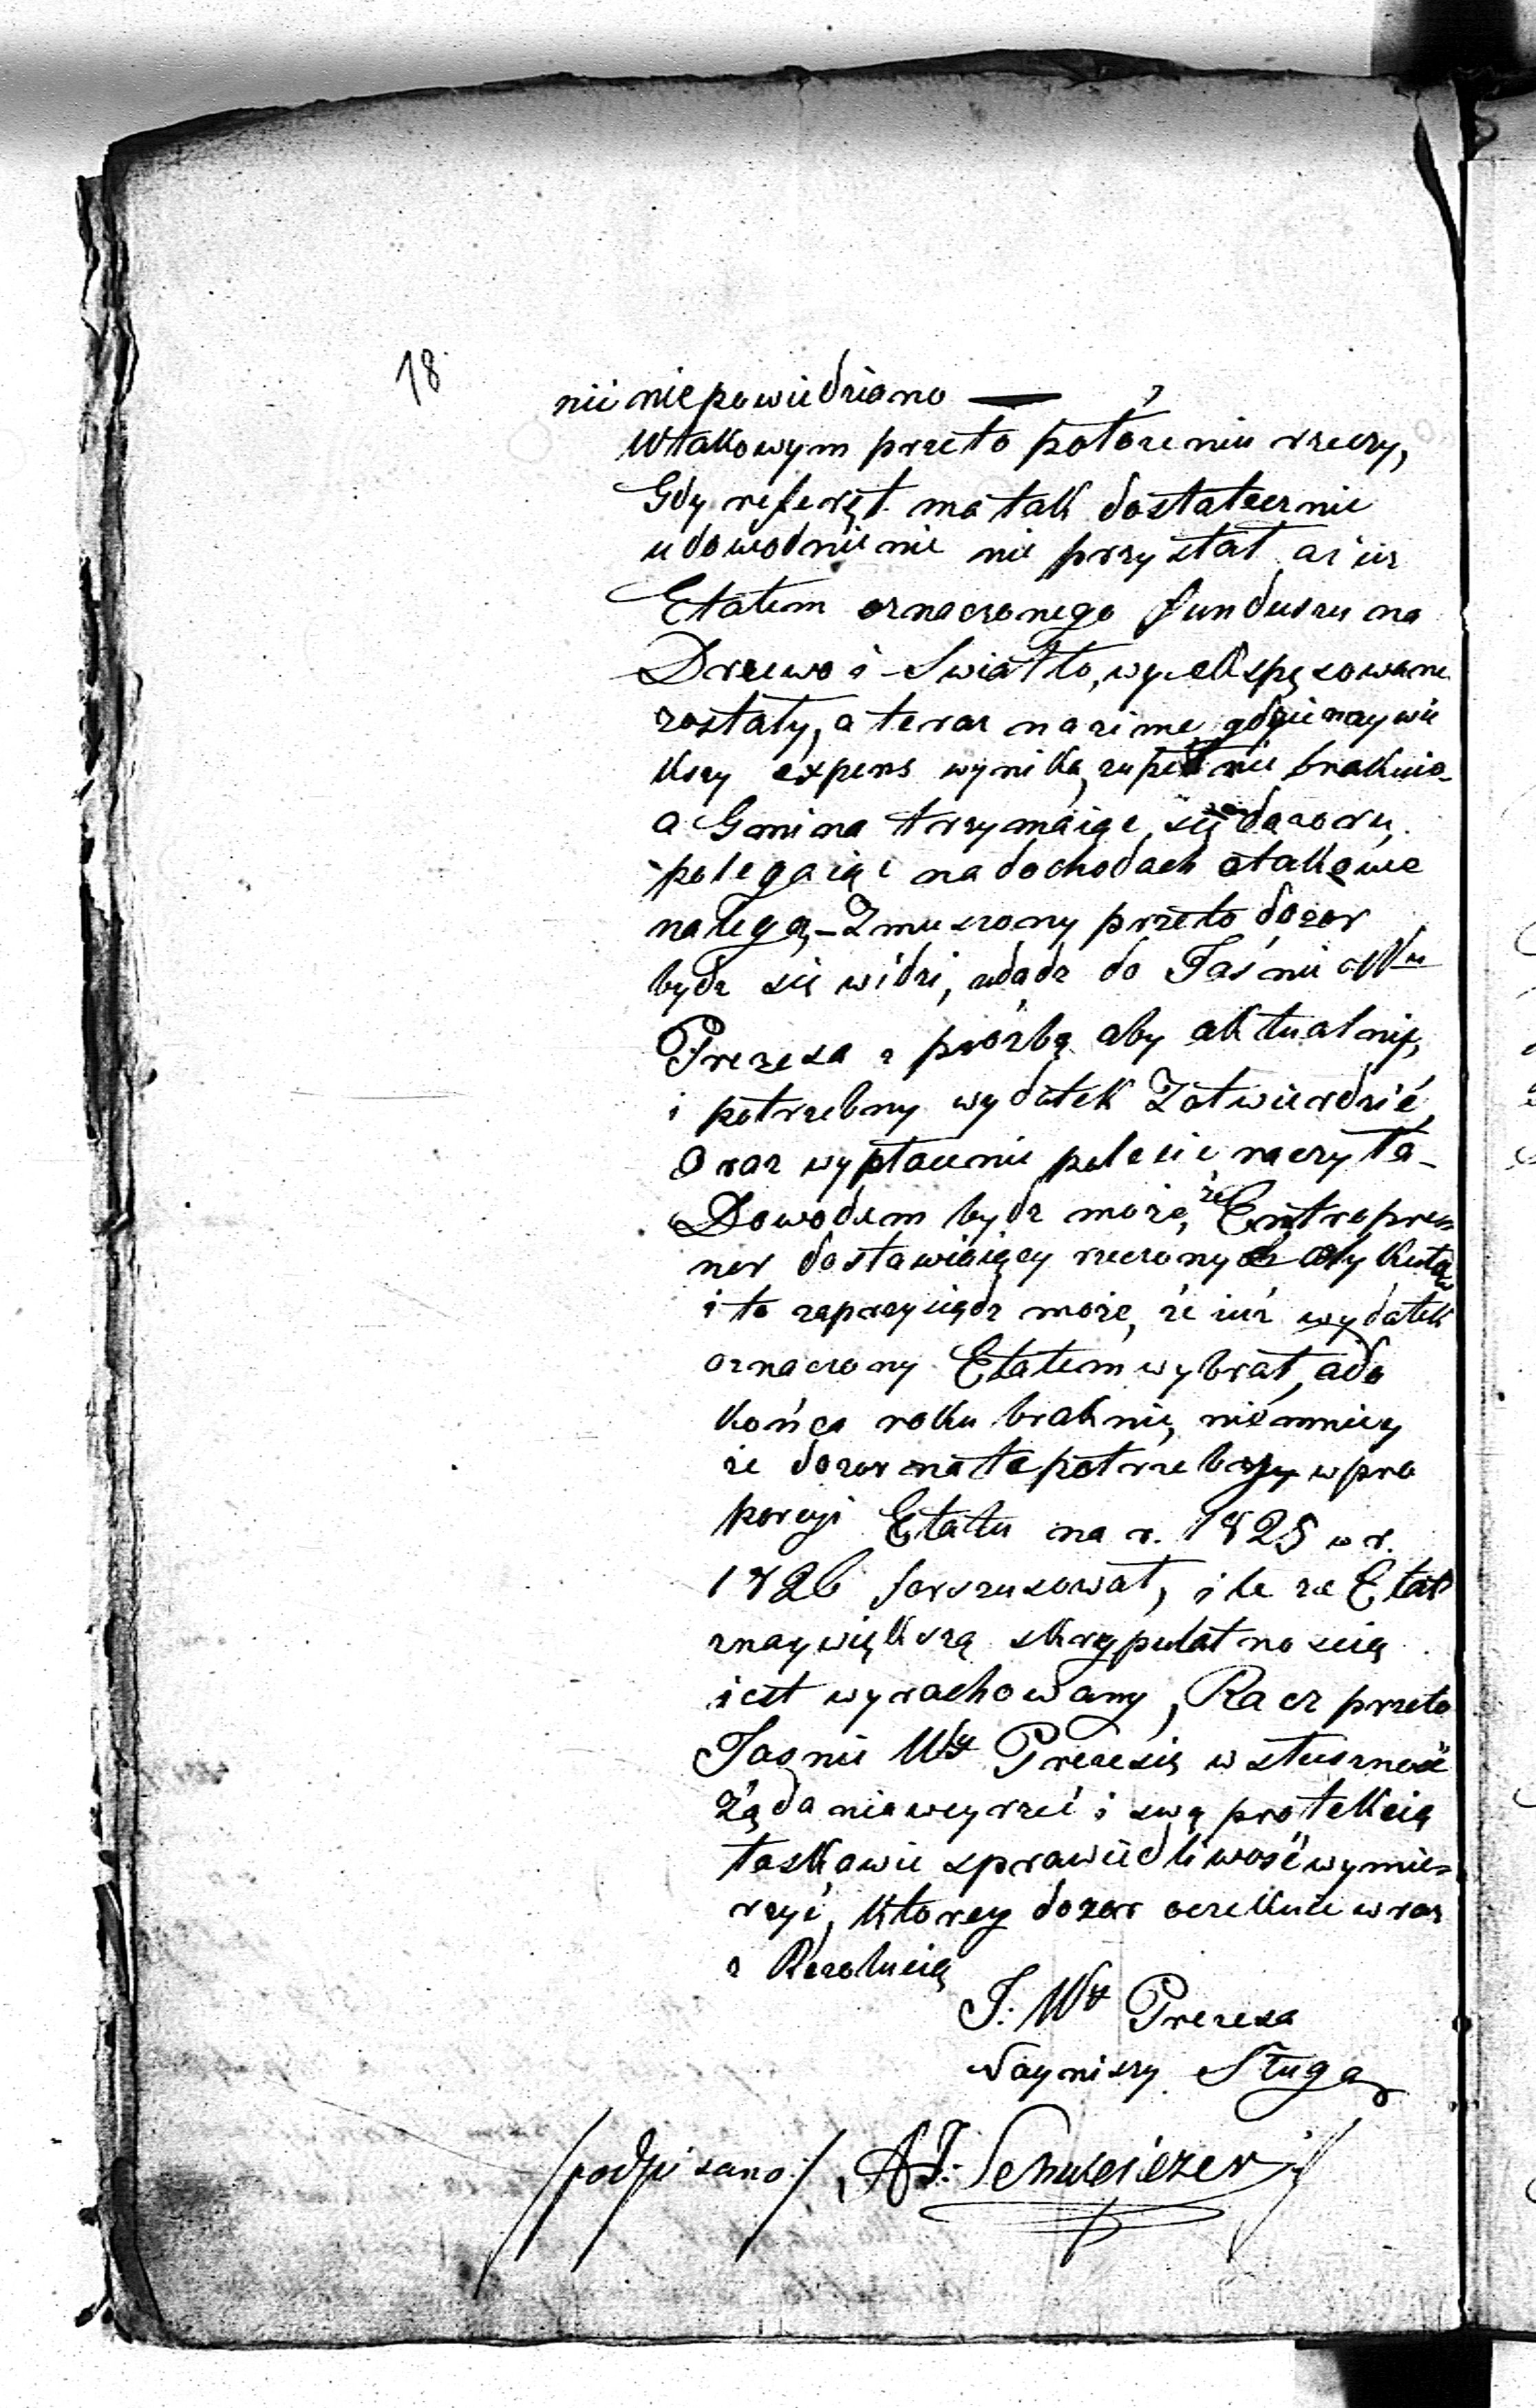 18
nie niepowiedziano —
Wtakowym przeto położeniu rzeczy,
Gdy referęt ma tak dostatecznie
udowodnienie nie przystał aż iuz
Etatem oznaczonego funduszu na
Drzewo i Swiatło, wyekspęsowane
zostały, a teraz na zimę gdzie naywię
kszy expens wynika, zupełnie braknie_
a Gmina trzymaiąc się dozoru,
polegaiąc na dochodach otakowe
nalega,_Zmuszony przeto dozor
bydz się widzi, udadz do Jaśnie Wu
Prezesa z prozbą aby aktualnię,
i potrzebny wydatek Zatwierdzić,
Oraz wypłacenie polecić raczyła_
Dowodem bydz może, że Entrepre=
ner dostawiaiący rzeczonych artykułów
i to zaprzysiądz może, że iuż wydatek
oznaczony Etatem wybrał, ado
końca roku braknie, niemniey
że dozor na te potrzeby w pro
porcyi Etatu na r. 1825 w r.
1826 forszusował, ile że Etat
znaywiększą skrypulatnoscią
iest wyrachowany, Racz przeto
Jasnie Wy Prezesie w słuszność
Żądania weyrzeć i swą protekcią
łaskawie sprawiedliwość wymie=
rzyć, ktorey dozor oczekuie wraz
z Rezolucią
J. Wo Prezesa
Nayniszy Sługa
/podpisano:/ AJ: